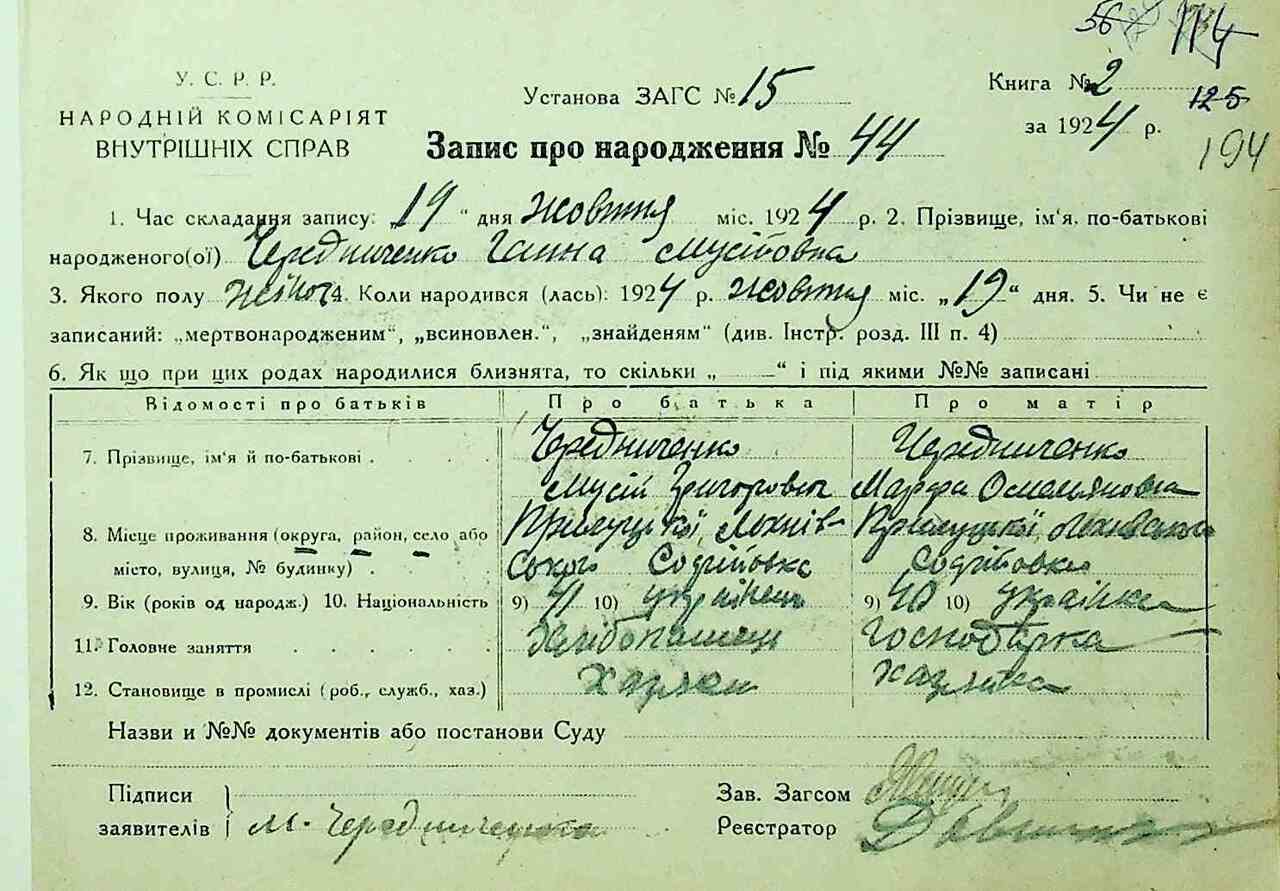 56 114
У. С. Р. Р.
НАРОДНІЙ КОМІСАРІЯТ
ВНУТРІШНІХ СПРАВ
Установа ЗАГС № 15
Книга № 2
125
за 1924 р.
194
Запис про народження № 44
1. Час складання запису: „19“ дня жовтня міс. 1924 р. 2. Прізвище, ім‘я, по-батькові
народженого(ої) Чередниченко Ганна Мусіївна
3. Якого полу жіноч 4. Коли народився (лась): 1924 р. жовтня міс. „19“ дня. 5. Чи не є
записаний: „мертвонародженим“, „всиновлен.“, „знайденям“ (див. Інстр. розд. III п. 4)
6. Як що при цих родах народилися близнята, то скільки „ “ і під якими №№ записані
Відомості про батьків Про батька Про матір
7. Прізвище, ім‘я й по-батькові Чередниченко Чередниченко
Мусій Григорович Марфа Омеляновна
8. Місце проживання (округа, район, село або Прилуцької, Лохнів- Прилуцької,
місто, вулиця, № будинку) ського Софіївка Софіївка
9. Вік (років од народж.) 10. Національність 9) 41 10) українець 9) 40 10) українка
11. Головне заняття Хлібопашец Господарка
12. Становище в промислі (роб., служб., хаз.) Хазяен хазяйка
Назви и №№ документів або постанови Суду
Підписи
заявителів М. Чередниченко
Зав. Загсом
Реєстратор